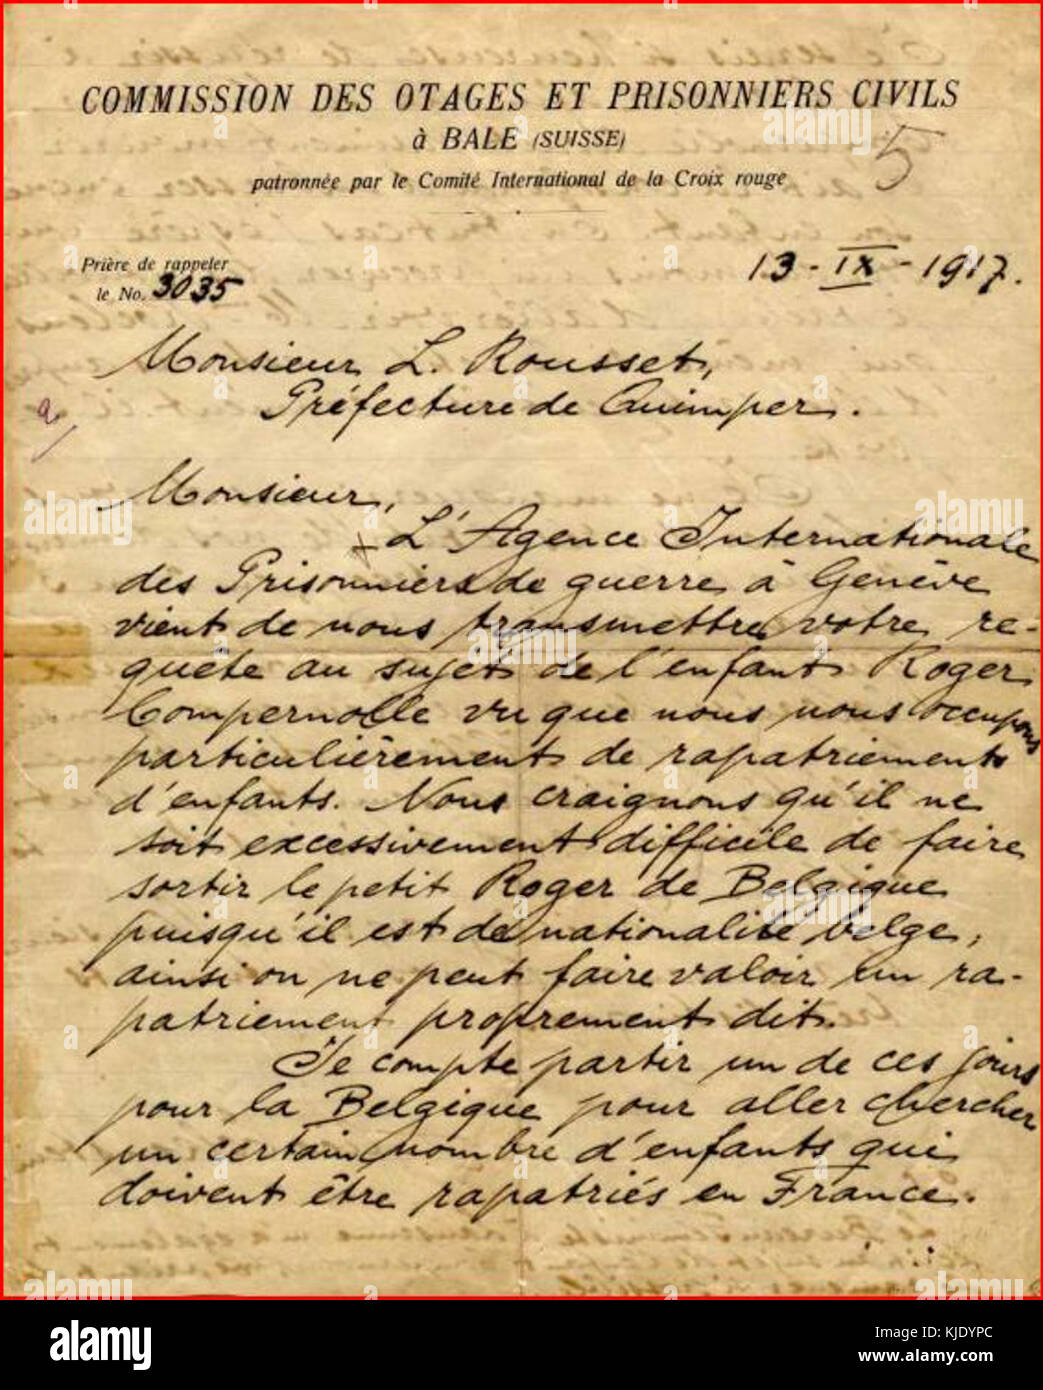 COMMISSION DES OTAGES ET PRISONNIERS CIVILS
à BALE (SUISSE)
5
patronnée par le Comité International de la Croix rouge
Prière de rappeler
le No. 3035
13 - IX - 1917.
Monsieur L. Rousset,
Préfecture de Quimper.
a/
Monsieur,
L'Agence Internationale
des Prisonniers de guerre à Genève
vient de nous transmettre votre re-
quête au sujet de l'enfant Roger
Compernolle vu que nous nous occupons
particulièrement de rapatriements
d'enfants. Nous craignons qu'il ne
soit excessivement difficile de faire
sortir le petit Roger de Belgique
puisqu'il est de nationalité belge,
ainsi on ne peut faire valoir un ra-
patriement proprement dit.
Je compte partir un de ces jours
pour la Belgique pour aller chercher
un certain nombre d'enfants qui
doivent être rapatriés en France.
alamy
Image ID: KJDYPC
www.alamy.com